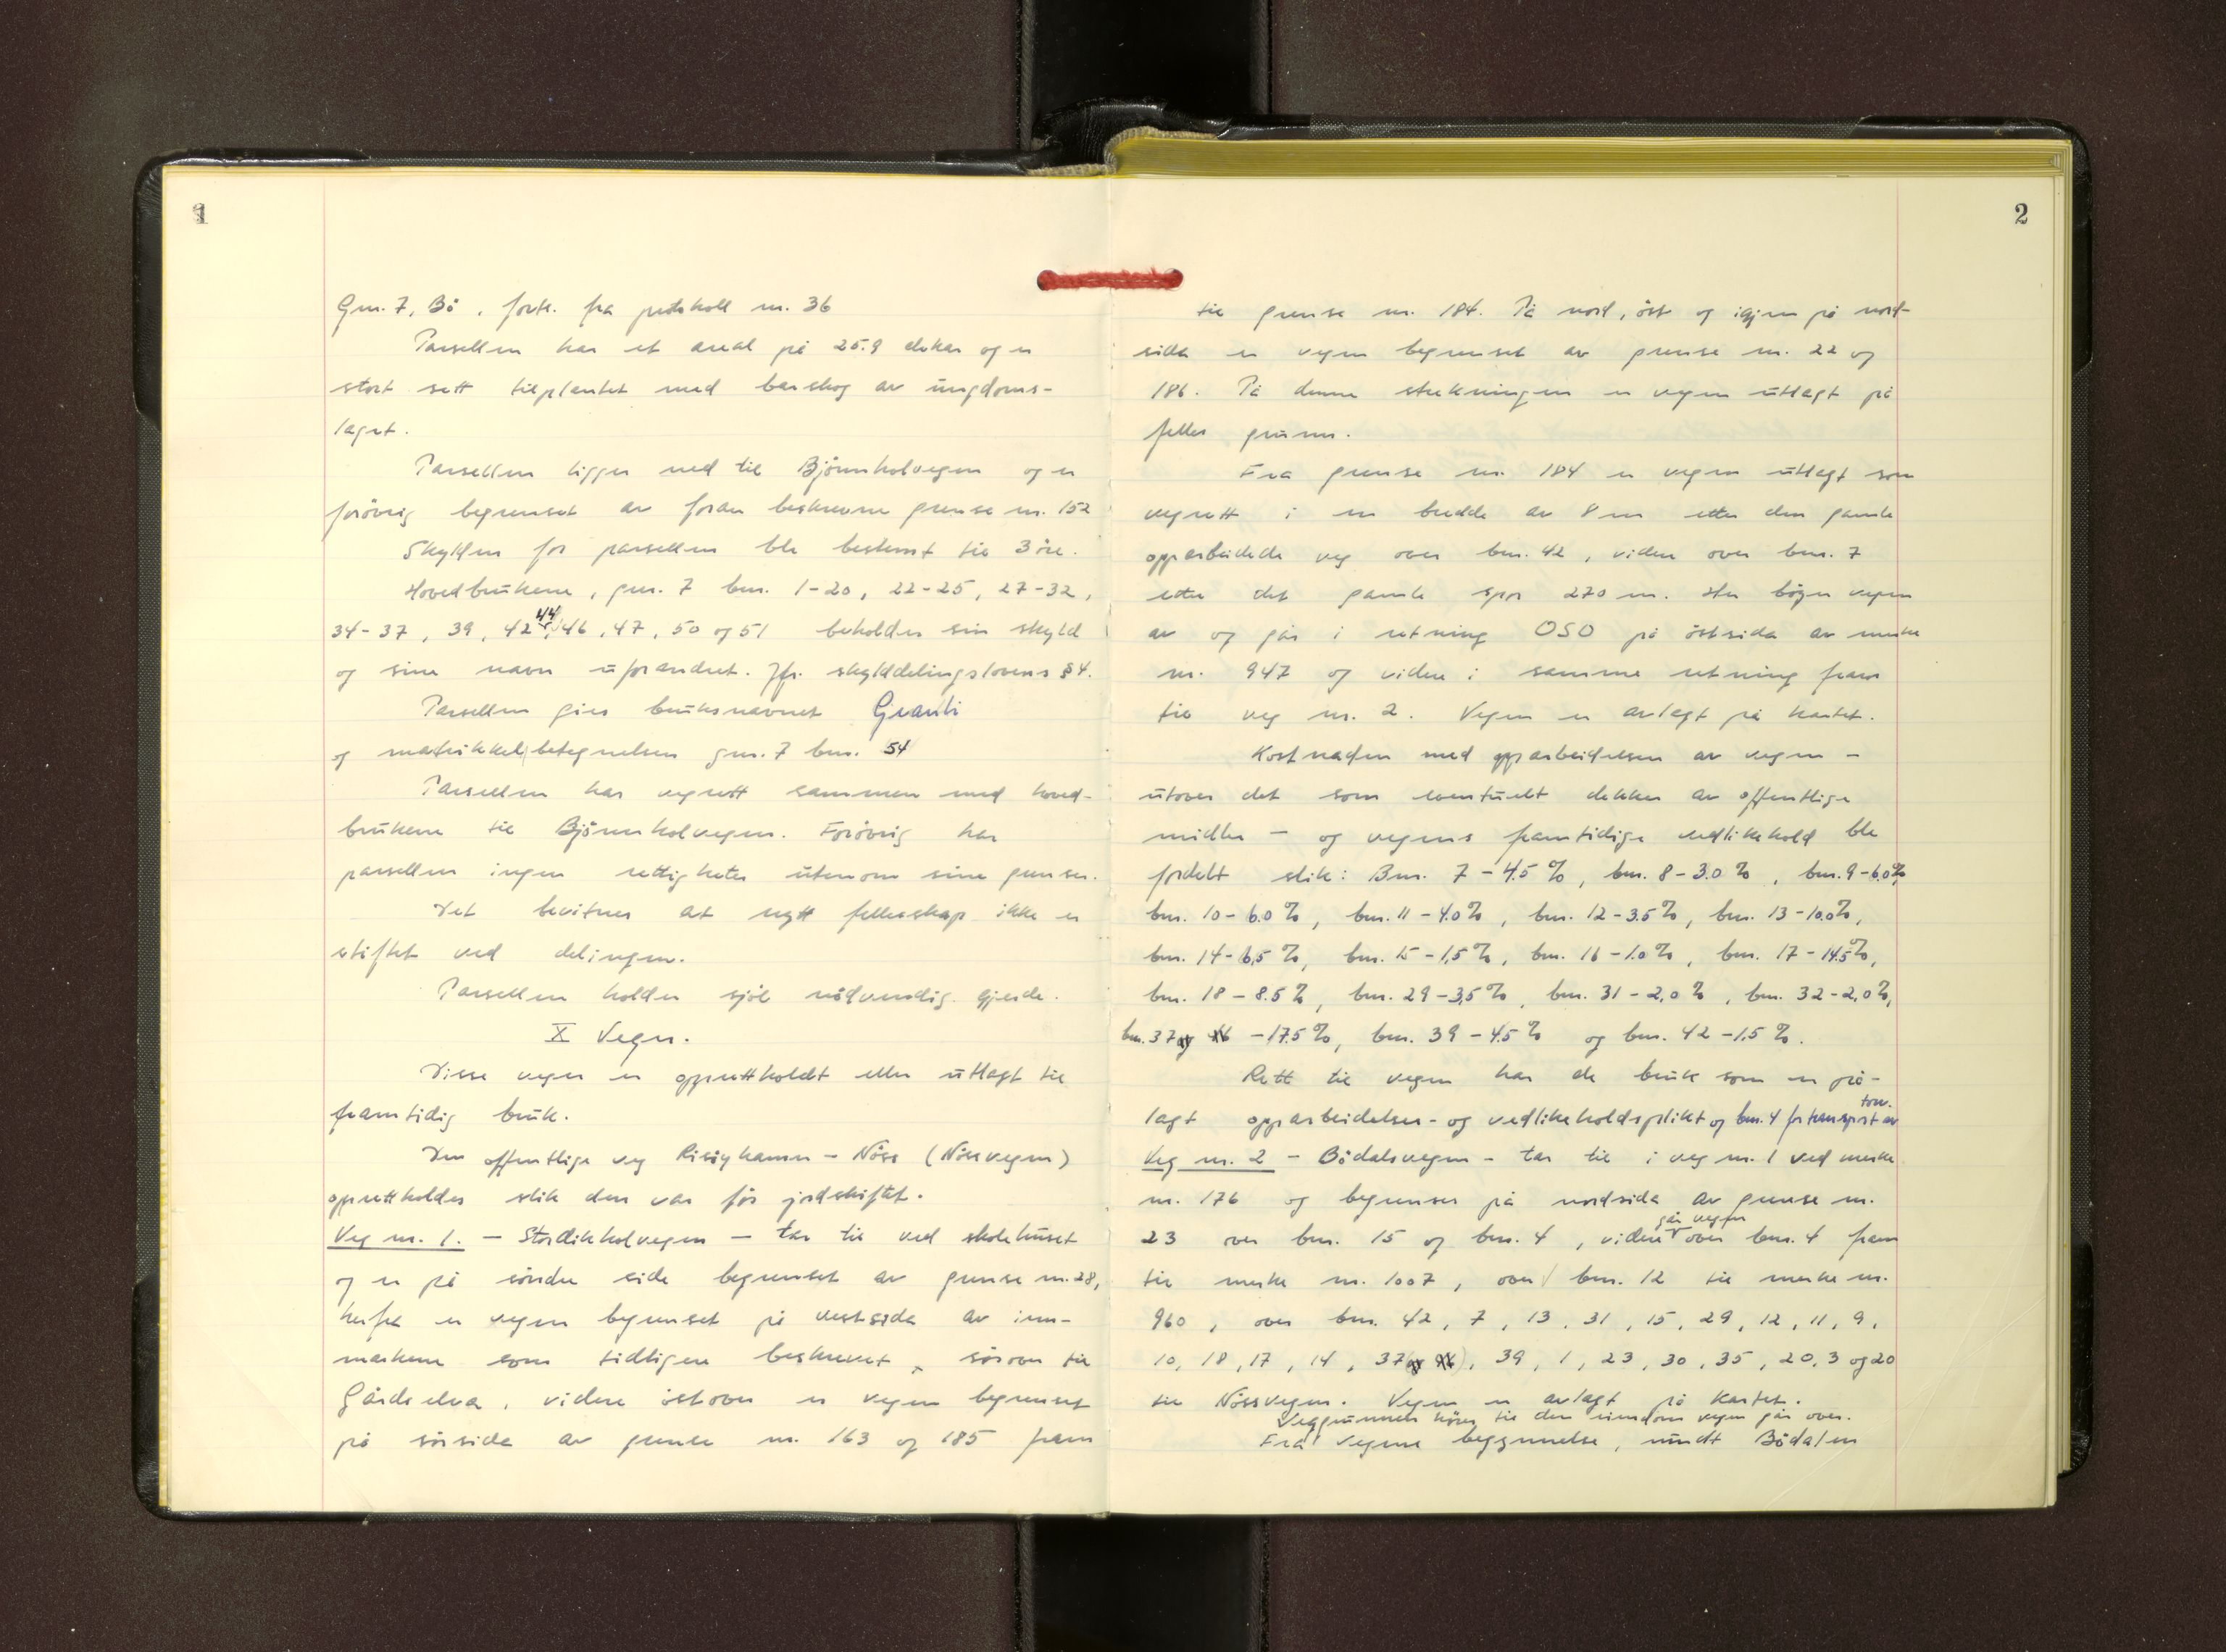 1
Gnr. 7, Bö, forts. fra protokoll nr. 36
Parsellen har et areal på 25.9 dekar og er
stort sett tilplantet med barskog av ungdoms-
laget.
Parsellen ligger ned til Bjönnholvegen og er
forövrig begrenset av foran beskrevne grense nr. 152
Skylden for parsellen ble bestemt til 3 öre.
Hovedbrukene, gnr. 7 bnr. 1-20, 22-25, 27-32,
34-37, 39, 42, 44, 46, 47, 50 og 51 beholder sin skyld
og sine navn uforandret. Jfr. skylddelingslovens § 4.
Parsellen gies bruksnavnet Granli
og matrikkelbetegnelsen gnr. 7 bnr. 54
Parsellen har vegrett sammen med hoved-
brukene til Bjönnholvegen. Forövrig har
parsellen ingen rettigheter utenom sine grenser.
Det bevitnes at nytt fellesskap ikke er
stiftet ved delingen.
Parsellen holder sjöl nödvendig gjerde.
X Veger.
Disse veger er opprettholdt eller utlagt til
framtidig bruk.
Den offentlige veg Risöyhamn - Nöss (Nössvegen)
opprettholdes slik den var för jordskiftet.
Veg nr. 1. - Stordikholvegen - tar til ved skolehuset
og er på söndre side begrenset av grense nr. 28,
herfra er vegen begrenset på vestsida av inn-
markene som tidligere beskrevet, sörover til
Gårdselva, videre östover er vegen begrenset
på sörsida av grense nr. 163 og 185 fram
2
til grense nr. 184. På nord, öst og igjen på nord-
sida er vegen begrenset av grense nr. 22 og
186. På denne strekningen er vegen utlagt på
felles grunn.
Fra grense nr. 184 er vegen utlagt som
vegrett i en bredde av 8 m etter den gamle
opparbeidede veg over bnr. 42, videre over bnr. 7
etter det gamle spor 270 m. Her böyer vegen
av og går i retning OSO på östsida av merke
nr. 947 og videre i samme retning fram
til veg nr. 2. Vegen er avlagt på kartet.
Kostnaden med opparbeidelsen av vegen -
utover det som eventuelt dekkes av offentlige
midler - og vegens framtidige vedlikehold ble
fordelt slik: Bnr. 7 - 4.5 %, bnr. 8 - 3.0 %, bnr. 9 - 6.0 %,
bnr. 10 - 6.0 %, bnr. 11 - 4.0 %, bnr. 12 - 3.5 %, bnr. 13 - 10.0 %,
bnr. 14 - 6,5 %, bnr. 15 - 1,5 %, bnr. 16 - 1.0 %, bnr. 17 - 14.5 %,
bnr. 18 - 8.5 %, bnr. 29 - 3,5 %, bnr. 31 - 2,0 %, bnr. 32 - 2,0 %,
bnr. 37 og 46 - 17.5 %, bnr. 39 - 4.5 % og bnr. 42 - 1,5 %.
Rett til vegen har de bruk som er på-
lagt opparbeidelses- og vedlikeholdsplikt og bnr. 4 for transport av torv.
Veg nr. 2 - Bödalsvegen - tar til i veg nr. 1 ved merke
nr. 176 og begrenses på nordsida av grense nr.
23 over bnr. 15 og bnr. 4, videre går vegen over bnr. 4 fram
til merke nr. 1007, over bnr. 12 til merke nr.
960, over bnr. 42, 7, 13, 31, 15, 29, 12, 11, 9,
10, 18, 17, 14, 37 (og 46), 39, 1, 23, 30, 35, 20, 3 og 20
til Nössvegen. Vegen er avlagt på kartet.
Veggrunnen hörer til den eiendom vegen går over.
Fra vegens begynnelse, rundt Bödalen